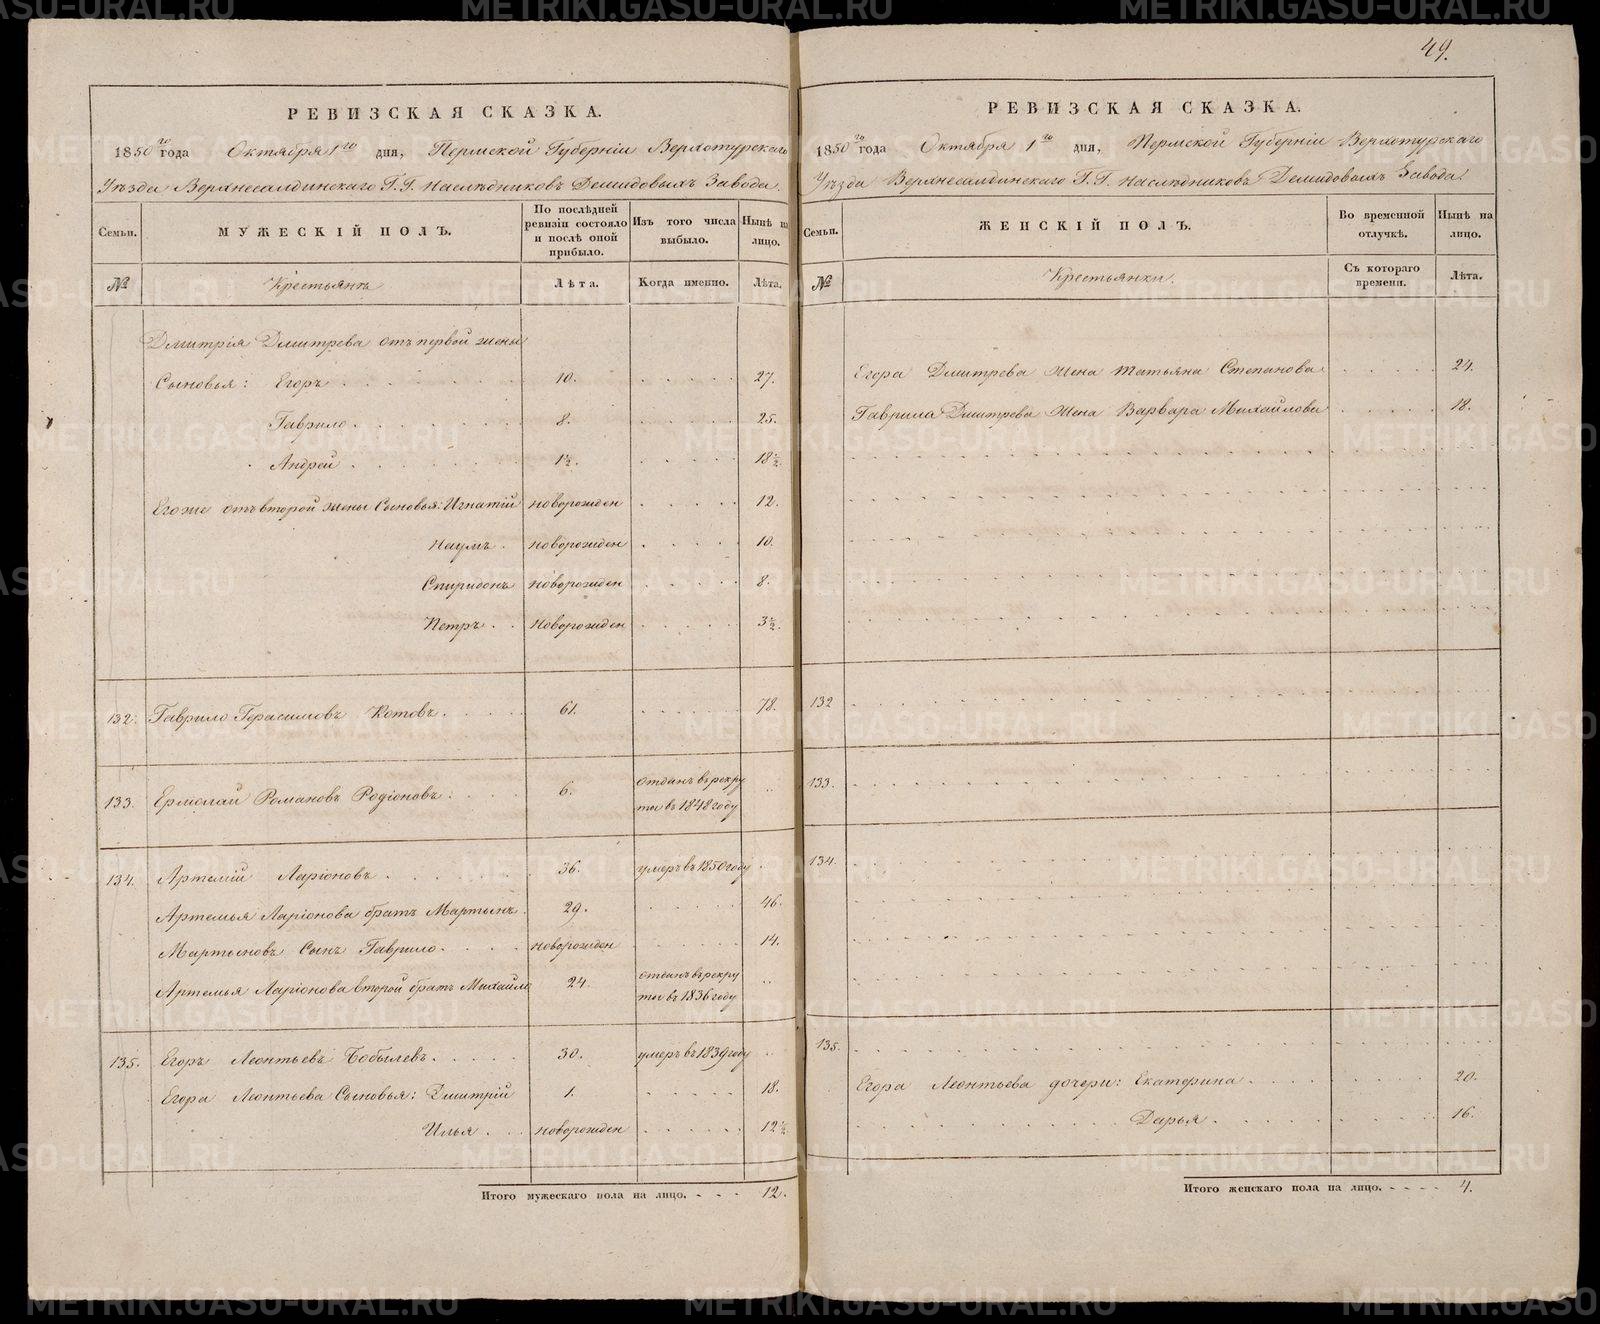 49.
РЕВИЗСКАЯ СКАЗКА.
1850го года Октября 1го дня, Пермской Губерніи Верхотурскаго
Уѣзда Верхнесалдинскаго Г.Г. Наслѣдниковъ Демидовыхъ Завода.
Семьи. МУЖЕСКІЙ ПОЛЪ. По послѣдней ревизіи состояло и послѣ оной прибыло. Изъ того числа выбыло. Нынѣ на лицо.
№ Крестьянъ Лѣта. Когда именно. Лѣта.
Дмитрія Дмитрева отъ первой жены
Сыновья: Егоръ 10. 27.
Гаврило 8. 25.
Андрей 1½. 18½.
Егоже отъ второй жены Сыновья: Игнатій новорожден 12.
Наумъ новорожден 10.
Спиридонъ новорожден 8.
Петръ новорожден 3½.
132. Гаврило Герасимовъ Котовъ 61. 78.
133. Ермолай Романовъ Родіоновъ 6. отданъ въ рекру
ты въ 1848 году
134. Артемій Ларіоновъ 36. умеръ въ 1850 году
Артемья Ларіонова братъ Мартынъ 29. 46.
Мартыновъ Сынъ Гаврило новорожден 14.
Артемья Ларіонова второй братъ Михайло 24. отданъ въ рекру
ты въ 1836 году
135. Егоръ Леонтьевъ Бобылевъ 30. умеръ въ 1839 году
Егора Леонтьева Сыновья: Дмитрій 1. 18.
Илья новорожден 12½
Итого мужескаго пола на лицо. 12.
РЕВИЗСКАЯ СКАЗКА.
1850го года Октября 1го дня, Пермской Губерніи Верхотурскаго
Уѣзда Верхнесалдинскаго Г.Г. Наслѣдниковъ Демидовыхъ Завода.
Семьи. ЖЕНСКІЙ ПОЛЪ. Во временной отлучкѣ. Нынѣ на лицо.
№ Крестьянки. Съ котораго времени. Лѣта.
Егора Дмитрева жена Татьяна Степанова 24.
Гаврила Дмитрева жена Варвара Михайлова 18.
132
133.
134.
135.
Егора Леонтьева дочери: Екатерина 20.
Дарья 16.
Итого женскаго пола на лицо. 4.
METRIKI.GASO-URAL.RU